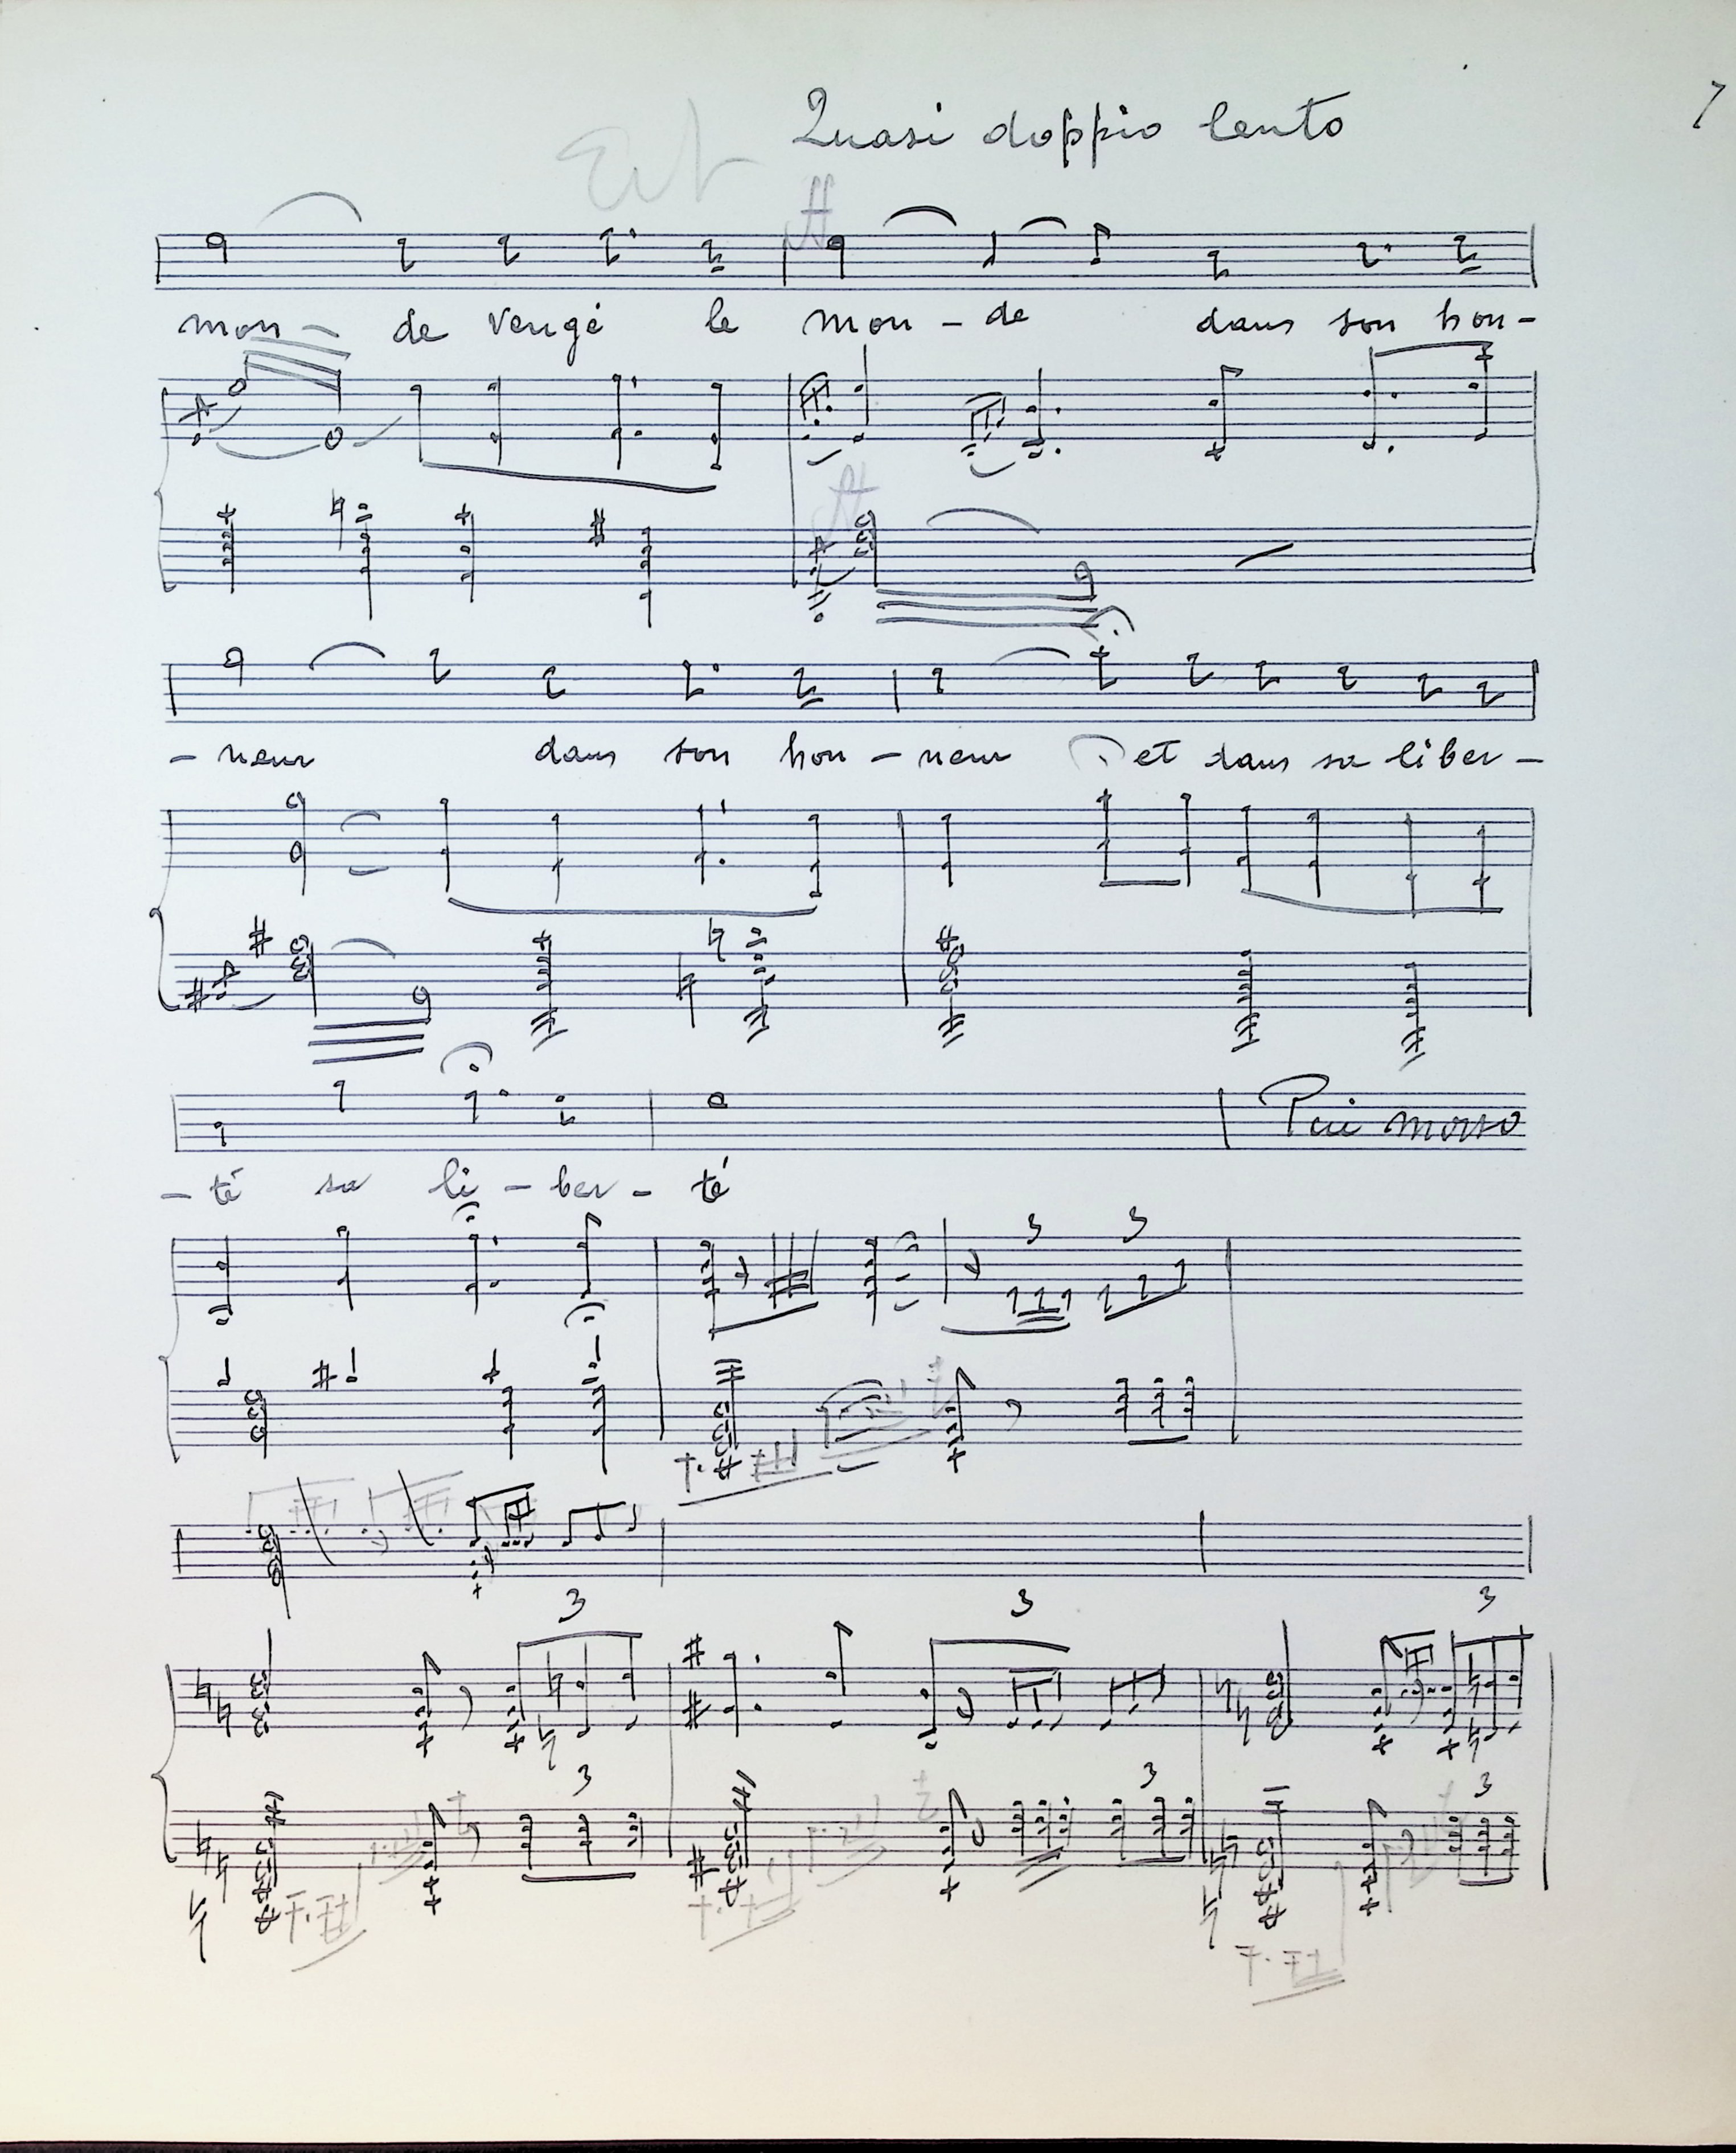 7
Quasi doppio lento
mon - de vengé le mon - de dans son hon -
- neur dans son hon - neur et dans sa liber -
Piu mosso
- té sa li - ber - té
3 3
3 3 3
3 3 3